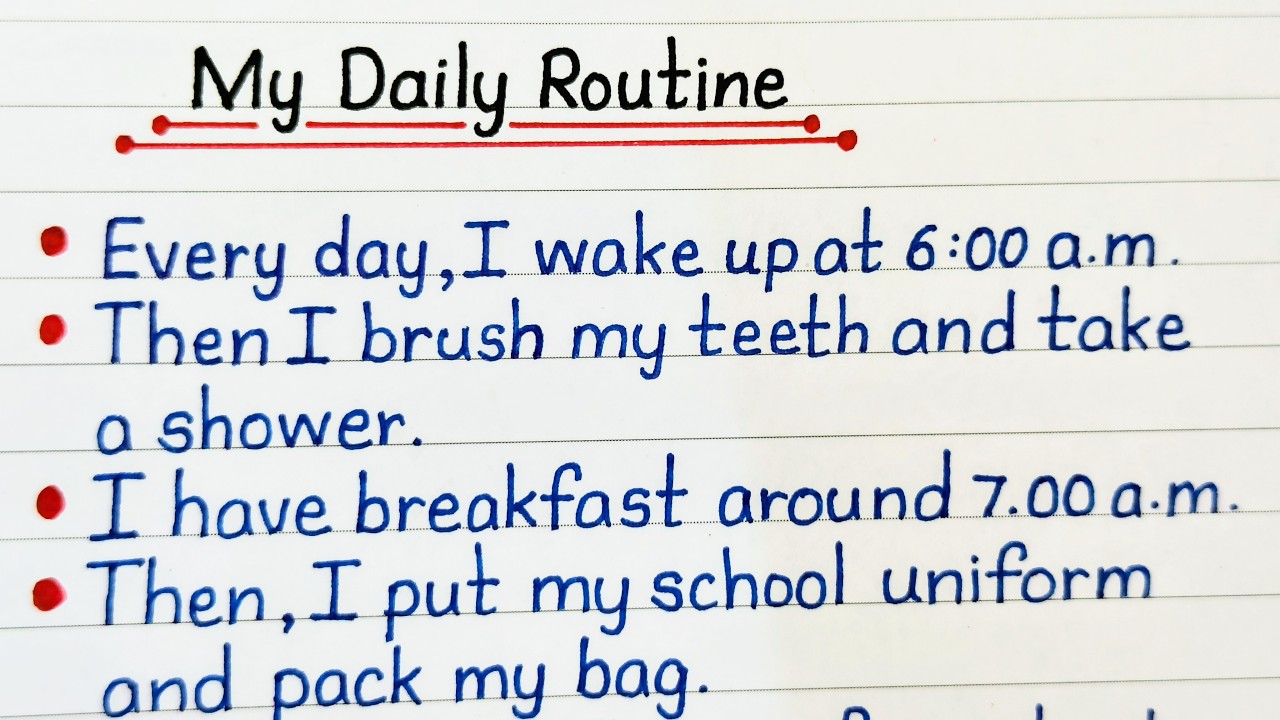 My Daily Routine
• Every day, I wake up at 6:00 a.m.
• Then I brush my teeth and take
a shower.
• I have breakfast around 7.00 a.m.
• Then, I put my school uniform
and pack my bag.